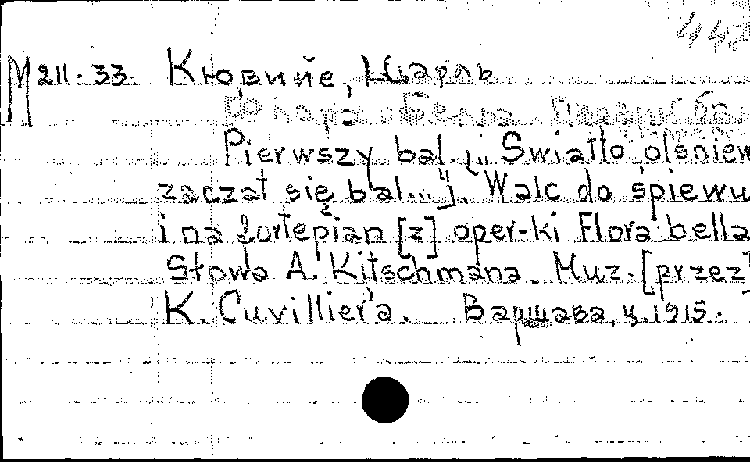 М 211.33 Кювийе, Шарль
Pierwszy bal [„Swiatło olśniew
zaczął się bal..."]. Walc do śpiewu
i na fortepian [z] oper-ki Flora bella
Słowa A. Kitschmana. Muz. [przez]
K. Cuvillier'a. Варшава, ц. 1915.